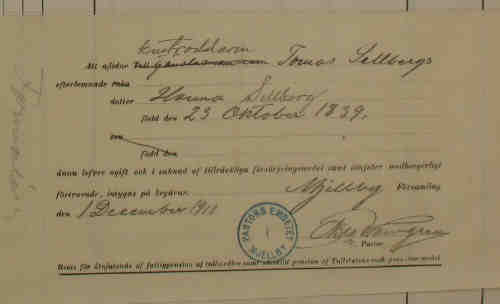 kustroddaren
Att aflidne Tull Tomas Sellbergs
efterlemnade enka
dotter Hanna Sellberg
född den 23 Oktober 1839.
son
född den
ännu lefver ogift och i saknad af tillräckliga försörjningsmedel samt åtnjuter medborgerligt
förtroende, intygas på begäran. Mjellby Församling
den 1 December 1911
PASTORS EMBETET
MJELLBY
Pastor.
Bevis för åtnjutande af fattigpension af tullmedlen samt pension af Tullstatens enke- och pupillkassa